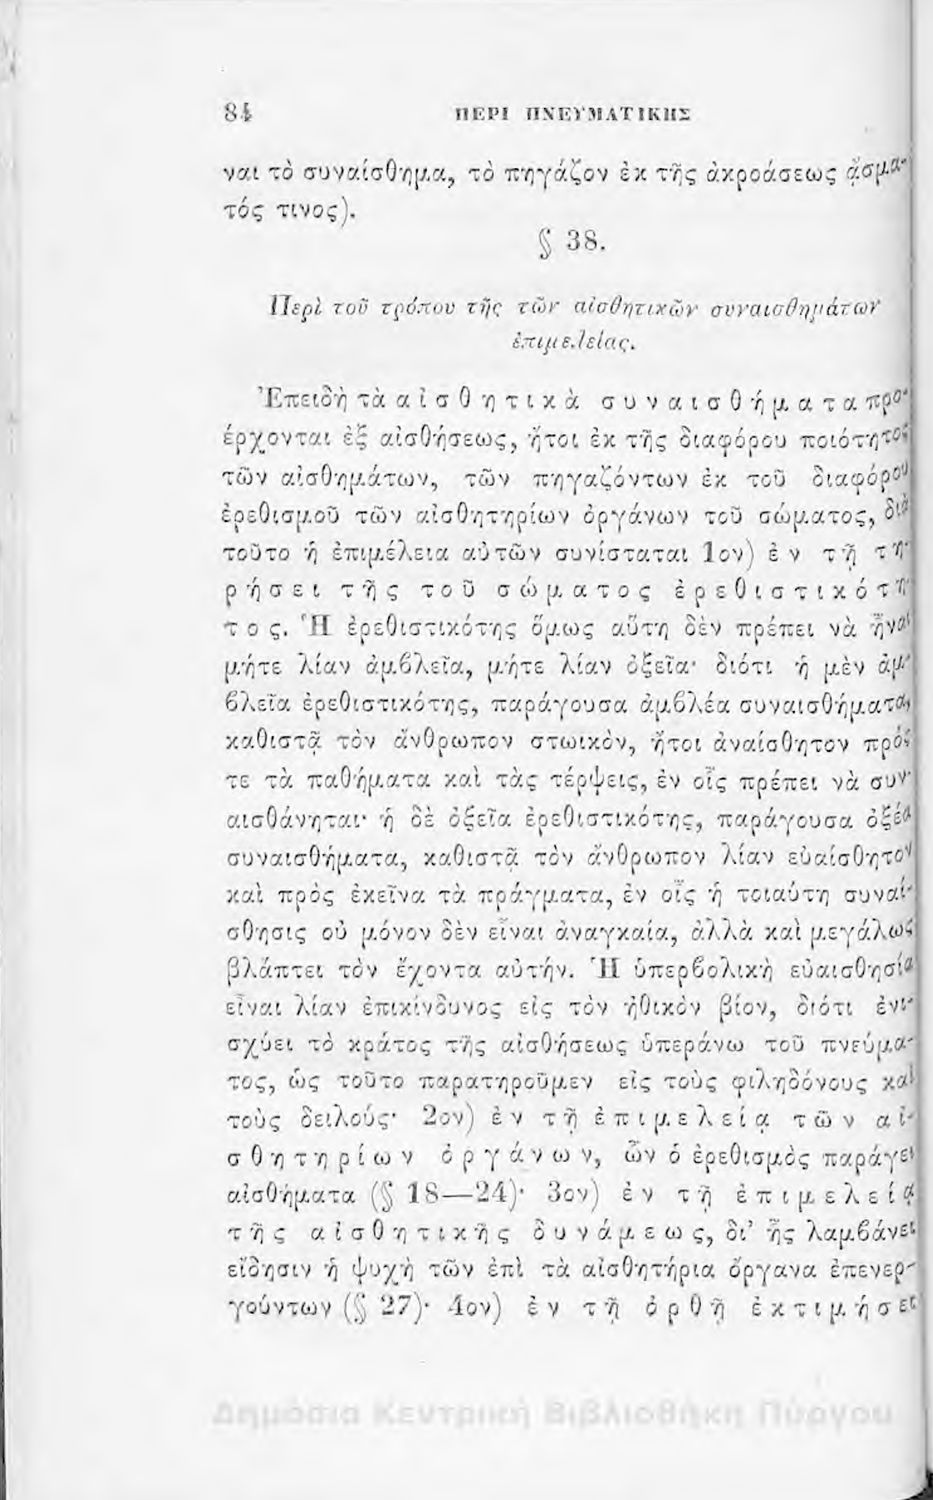 84 ΠΕΡΙ ΠΝΕΥΜΑΤΙΚΗΣ
ναι τὸ συναίσθημα, τὸ πηγάζον ἐκ τῆς ἀκροάσεως ᾄσμα-
τός τινος).
§ 38.
Περὶ τοῦ τρόπου τῆς τῶν αἰσθητικῶν συναισθημάτων
ἐπιμελείας.
Ἐπειδὴ τὰ αἰσθητικὰ συναισθήματα προ-
έρχονται ἐξ αἰσθήσεως, ἤτοι ἐκ τῆς διαφόρου ποιότητος
τῶν αἰσθημάτων, τῶν πηγαζόντων ἐκ τοῦ διαφόρου
ἐρεθισμοῦ τῶν αἰσθητηρίων ὀργάνων τοῦ σώματος, διὰ
τοῦτο ἡ ἐπιμέλεια αὐτῶν συνίσταται 1ον) ἐν τῇ τη-
ρήσει τῆς τοῦ σώματος ἐρεθιστικότη-
τος. Ἡ ἐρεθιστικότης ὅμως αὕτη δὲν πρέπει νὰ ἦναι
μήτε λίαν ἀμβλεῖα, μήτε λίαν ὀξεῖα· διότι ἡ μὲν ἀμ-
βλεῖα ἐρεθιστικότης, παράγουσα ἀμβλέα συναισθήματα,
καθιστᾷ τὸν ἄνθρωπον στωικὸν, ἤτοι ἀναίσθητον πρός
τε τὰ παθήματα καὶ τὰς τέρψεις, ἐν οἷς πρέπει νὰ συν-
αισθάνηται· ἡ δὲ ὀξεῖα ἐρεθιστικότης, παράγουσα ὀξέα
συναισθήματα, καθιστᾷ τὸν ἄνθρωπον λίαν εὐαίσθητον
καὶ πρὸς ἐκεῖνα τὰ πράγματα, ἐν οἷς ἡ τοιαύτη συναί-
σθησις οὐ μόνον δὲν εἶναι ἀναγκαία, ἀλλὰ καὶ μεγάλως
βλάπτει τὸν ἔχοντα αὐτήν. Ἡ ὑπερβολικὴ εὐαισθησία
εἶναι λίαν ἐπικίνδυνος εἰς τὸν ἠθικὸν βίον, διότι ἐνι-
σχύει τὸ κράτος τῆς αἰσθήσεως ὑπεράνω τοῦ πνεύμα-
τος, ὡς τοῦτο παρατηροῦμεν εἰς τοὺς φιληδόνους καὶ
τοὺς δειλούς· 2ον) ἐν τῇ ἐπιμελείᾳ τῶν αἰ-
σθητηρίων ὀργάνων, ὧν ὁ ἐρεθισμὸς παράγει
αἰσθήματα (§ 18—24)· 3ον) ἐν τῇ ἐπιμελείᾳ
τῆς αἰσθητικῆς δυνάμεως, δι' ἧς λαμβάνει
εἴδησιν ἡ ψυχὴ τῶν ἐπὶ τὰ αἰσθητήρια ὄργανα ἐπενερ-
γούντων (§ 27)· 4ον) ἐν τῇ ὀρθῇ ἐκτιμήσει
Δημόσια Κεντρική Βιβλιοθήκη Πύργου